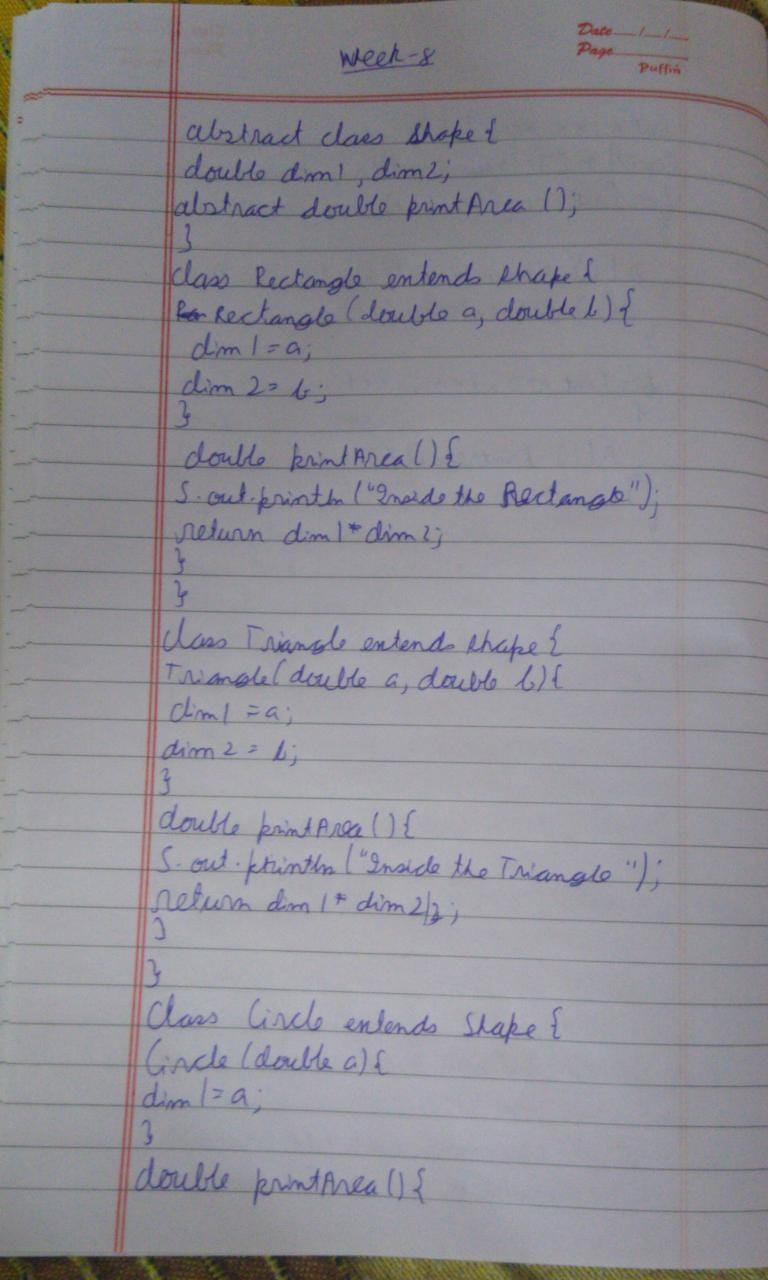 Date / /
Page
Puffin
Week-8
abstract class Shape {
double dim1, dim2;
abstract double printArea ();
}
class Rectangle extends Shape {
Rectangle (double a, double b) {
dim1 = a;
dim2 = b;
}
double printArea () {
S.out.println ("Inside the Rectangle");
return dim1 * dim2;
}
}
class Triangle extends Shape {
Triangle (double a, double b) {
dim1 = a;
dim2 = b;
}
double printArea () {
S.out.println ("Inside the Triangle");
return dim1 * dim2/2;
}
}
Class Circle extends Shape {
Circle (double a) {
dim1 = a;
}
double printArea () {